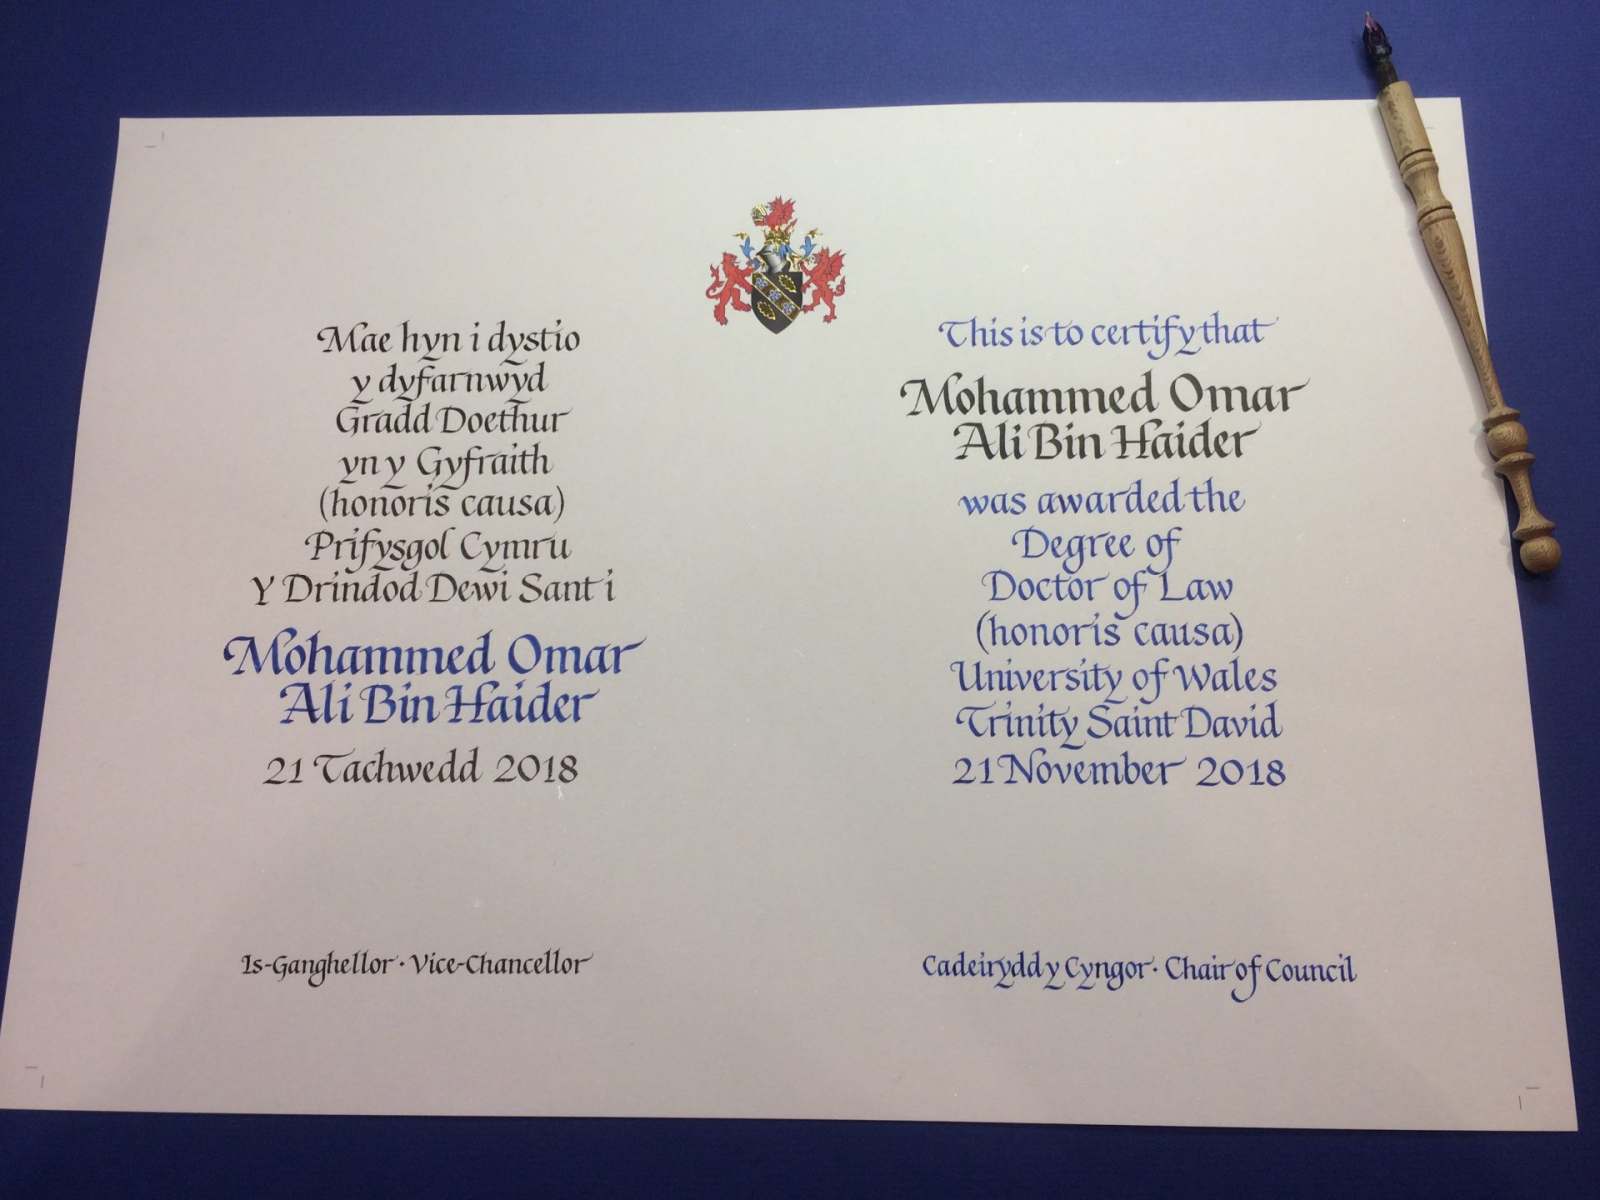 Mae hyn i dystio
y dyfarnwyd
Gradd Doethur
yn y Gyfraith
(honoris causa)
Prifysgol Cymru
Y Drindod Dewi Sant i
Mohammed Omar
Ali Bin Haider
21 Tachwedd 2018
Is-Ganghellor · Vice-Chancellor
This is to certify that
Mohammed Omar
Ali Bin Haider
was awarded the
Degree of
Doctor of Law
(honoris causa)
University of Wales
Trinity Saint David
21 November 2018
Cadeirydd y Cyngor · Chair of Council